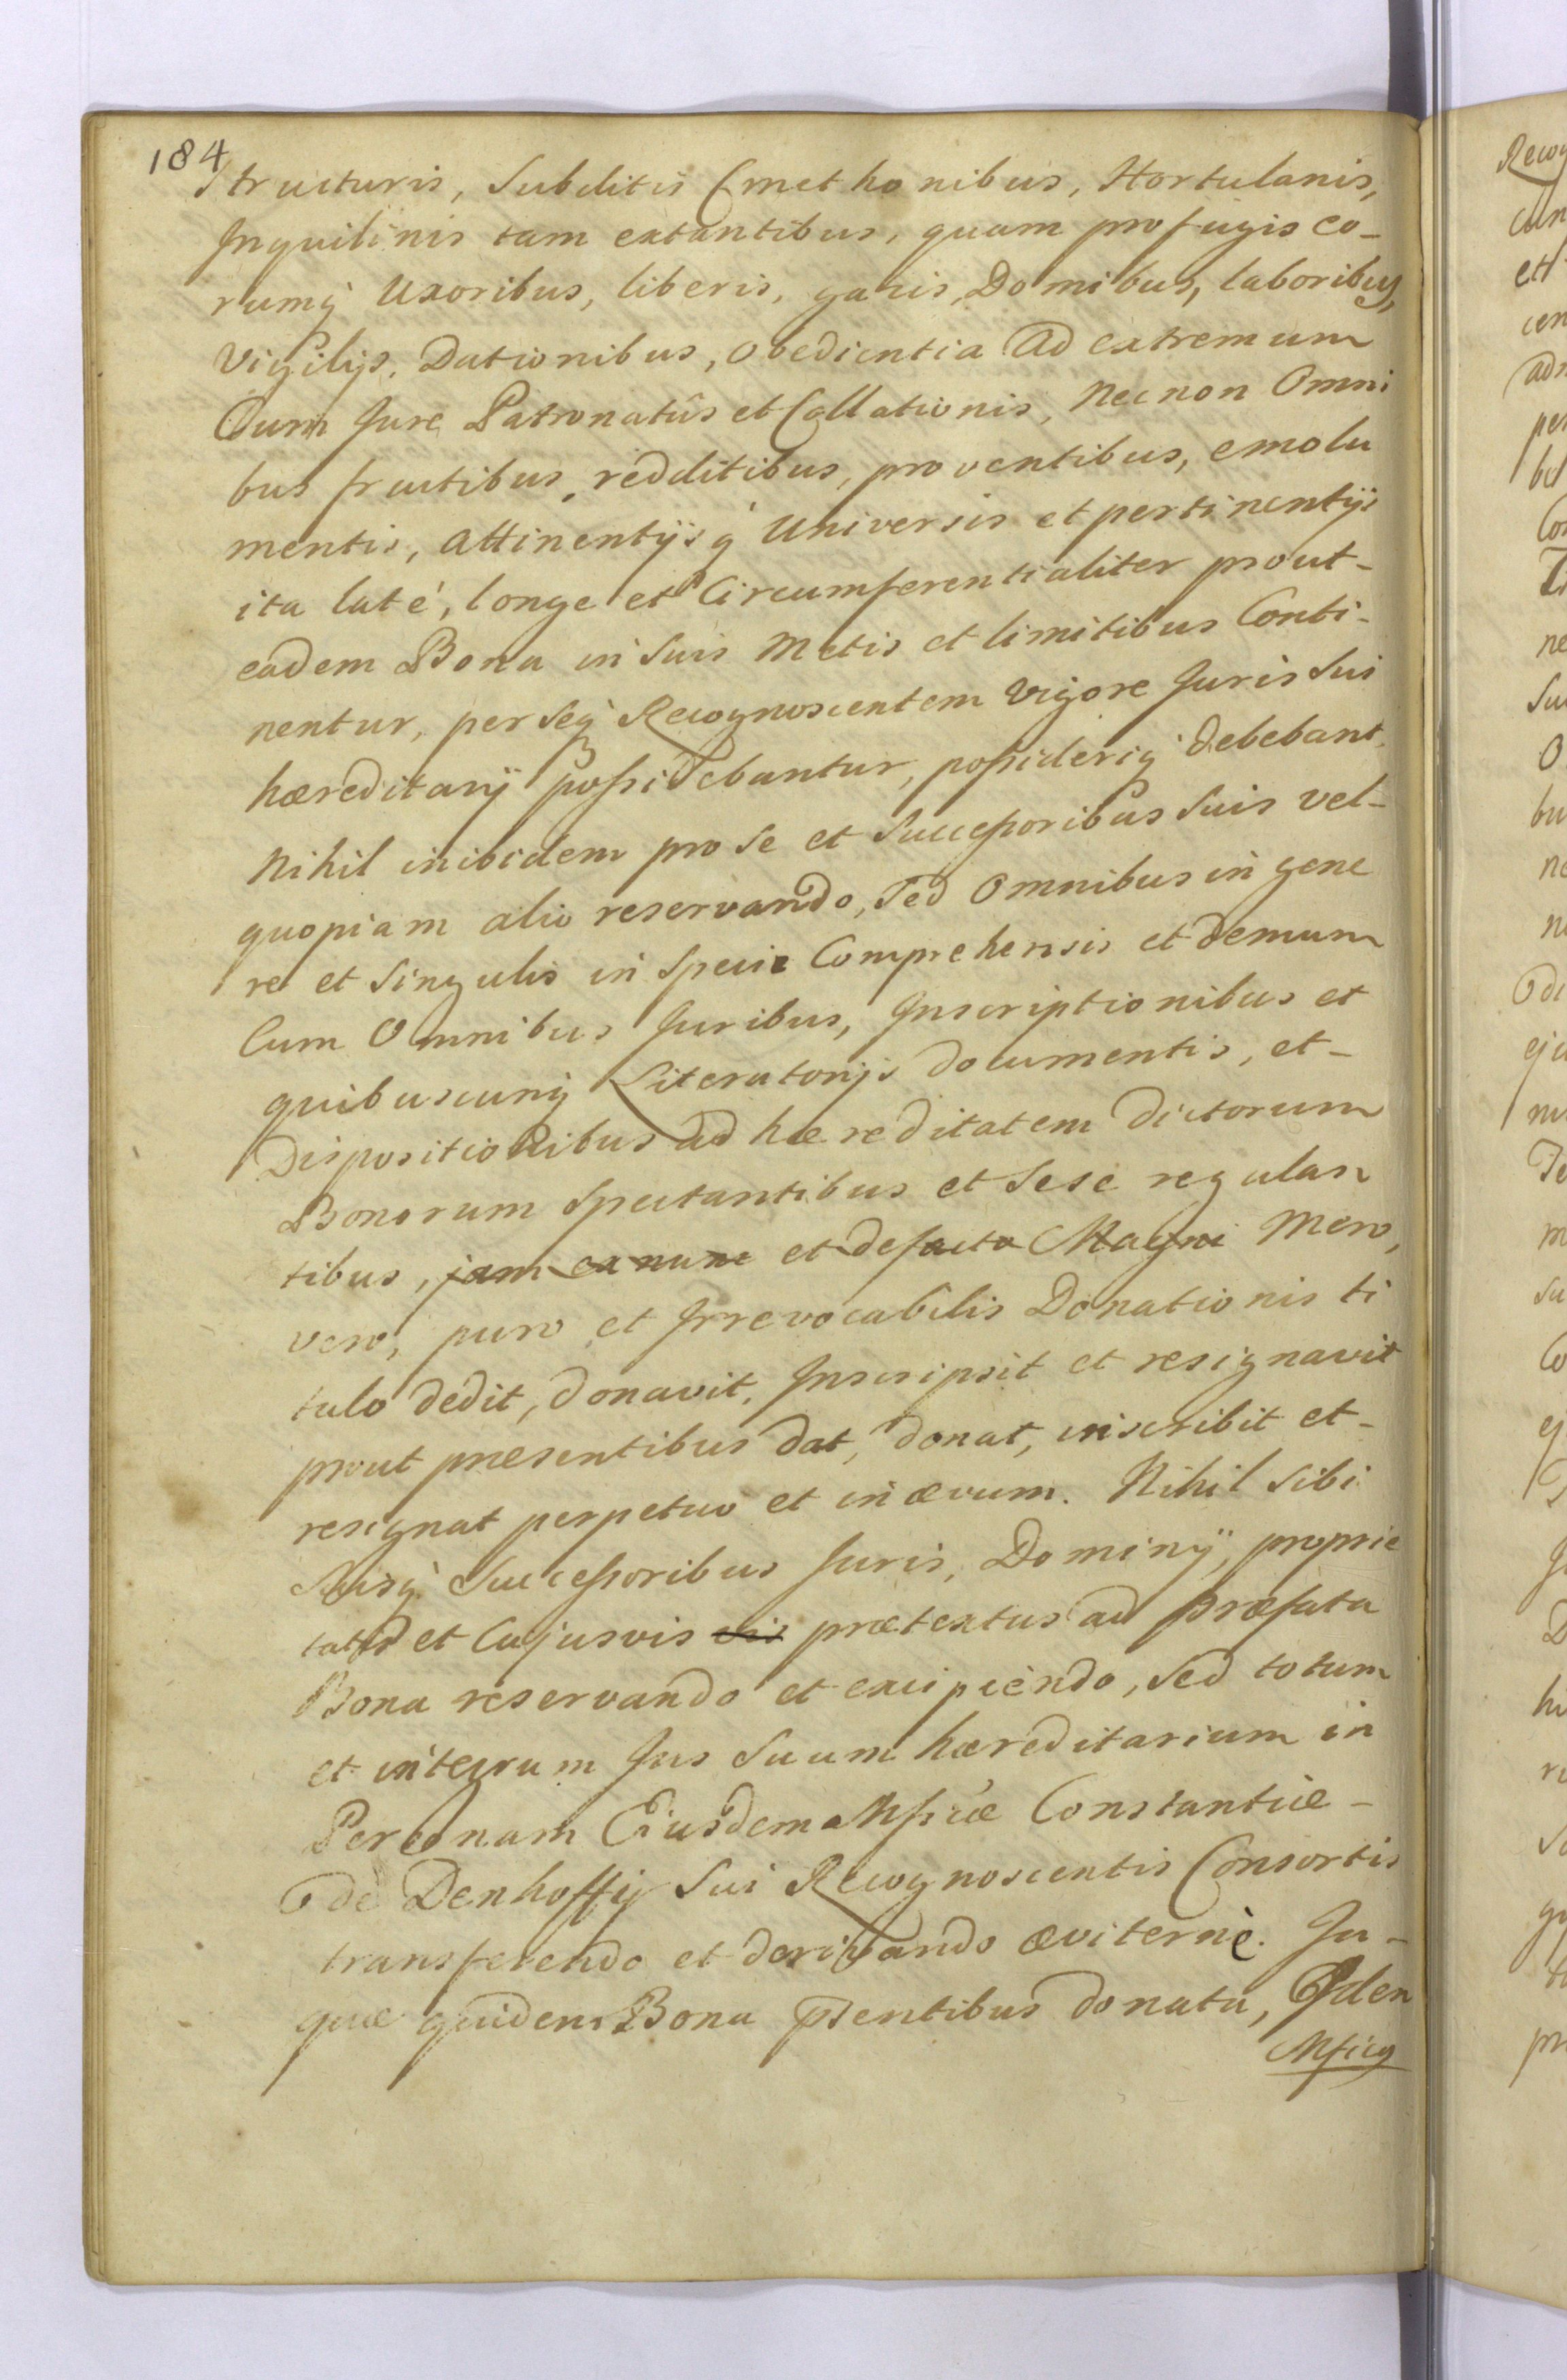 184
Structuris, Subditis Cmethonibus, Hortulanis,
Inquilinis tam extantibus, quam profugis eo-
rumq́ Uxoribus, liberis, gazis, Domibus, laboribus,
Vigilijs, Dationibus, obedientia ad extremum
Cum Jure Patronatûs et Collationis, Necnon Omni
bus fructibus, redditibus, proventibus, emolu
mentis, attinentÿsq́ Universis et pertinentÿs
ita laté, longe et Circumferentialiter prout-
eadem Bona in Suis Metis et limitibus Conti-
nentur, per Seq́ Recognoscentem Vigore Juris Sui
hæreditarÿ possidebantur, possideriq́ debebant.
Nihil inibidem pro Se et Successoribus Suis vel-
quopiam alio reservando, Sed Omnibus in gene
re et Singulis in Specie Comprehensis et demum
Cum Omnibus Juribus, Inscriptionibus et
quibuscunq́ Literatorijs documentis, et-
Dispositionibus ad hæreditatem dictorum
Bonorum Spectantibus et Sese regulan
tibus, jam ex nunc et defacto Magni Mero,
vero, puro et Irrevocabilis Donationis ti
tulo dedit, donavit, Inscripsit et resignavit
prout præsentibus dat, donat, inscribit et-
resignat perpetuo et in ævum. Nihil Sibi
Suisq́ Successoribus Juris, Dominÿ, proprie
tatis et Cujusvis vis prætextus ad præfata
Bona reservando et excipiendo, Sed totum
et integrum Jus Suum hæreditarium in
Personam Eiusdem Mficæ Constantiæ-
de Denhoffÿ Sui Recognoscentis Consortis
transferendo et derivando æviternè. In-
quæ quidem Bona psentibus donata, Eiden
Mficæ
Recog